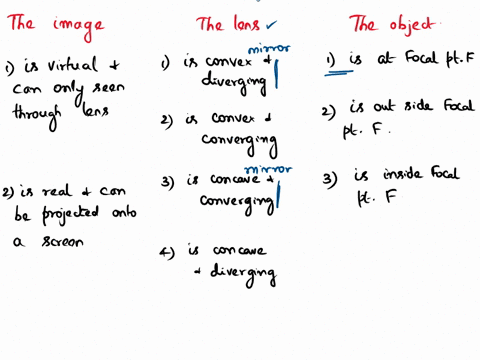 The image
1) is virtual +
can only seen
through lens
2) is real + can
be projected onto
a screen
The lens ✓
mirror
1) is convex +
diverging
2) is convex +
converging
mirror
3) is concave +
converging
4) is concave
+ diverging
The object
1) is at Focal pt. F
2) is out side Focal
pt. F.
3) is inside Focal
pt. F